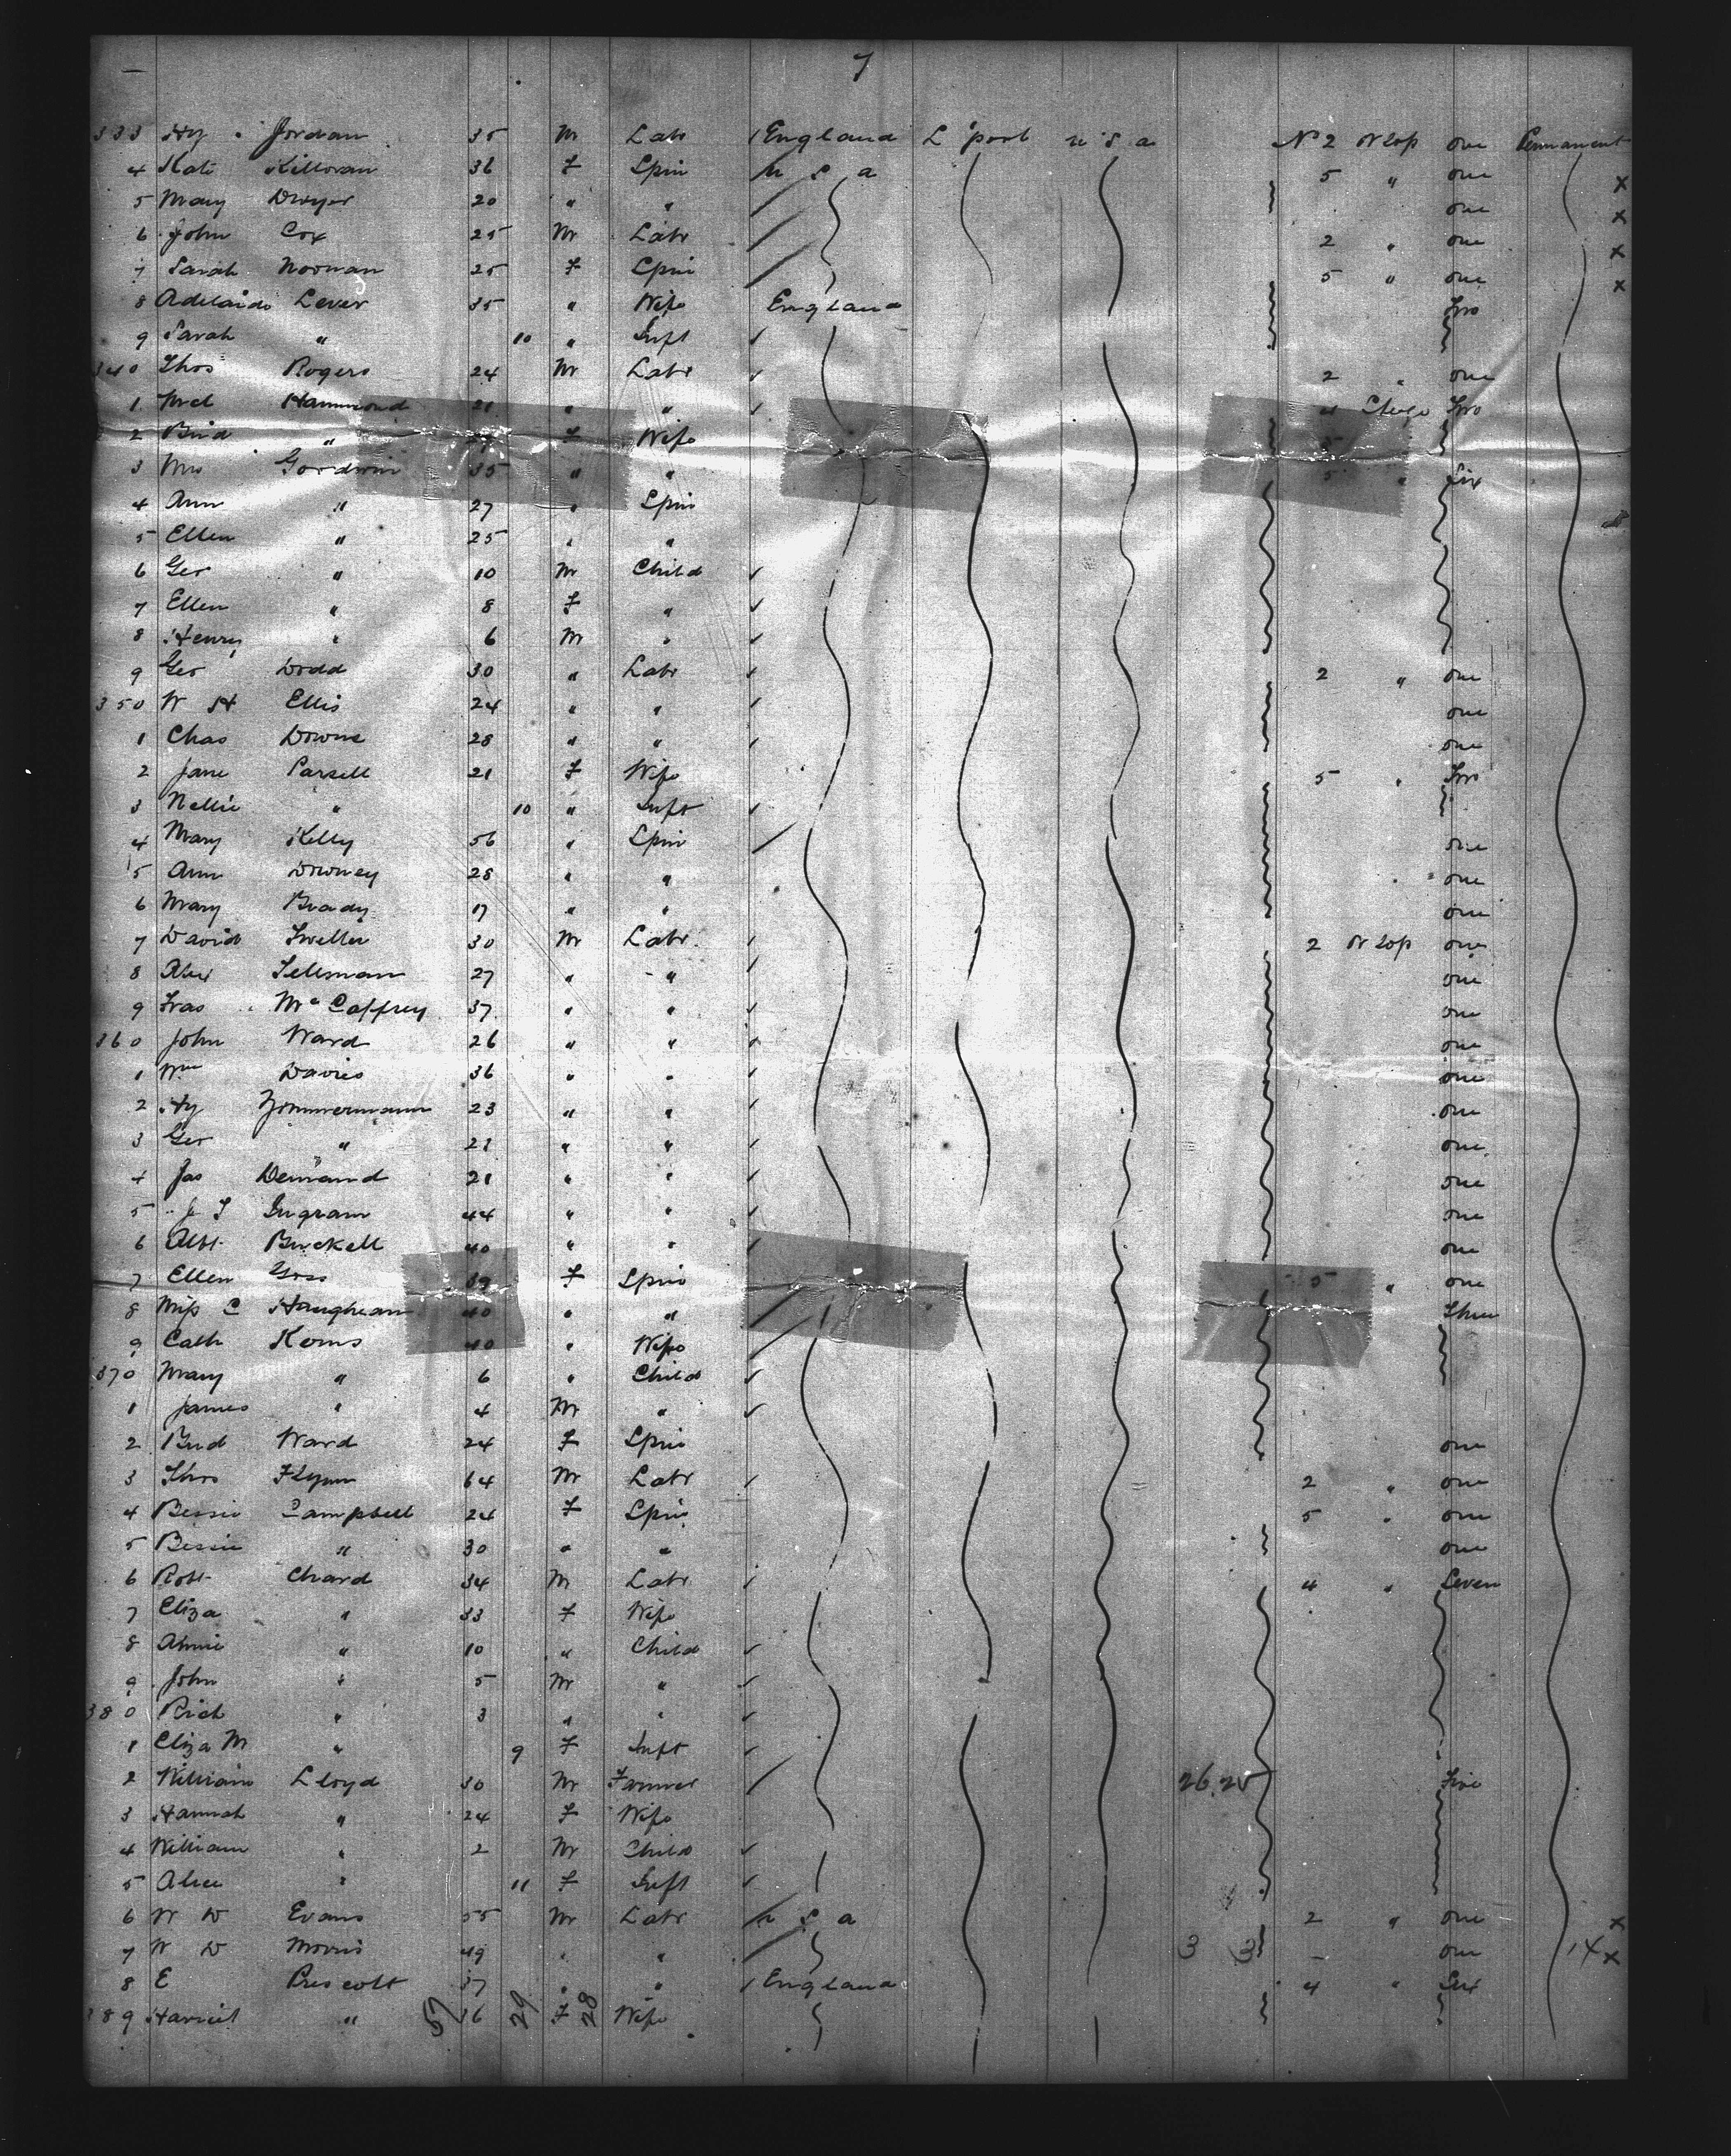 7
333 Hy Jordan 35 M Labr / England L'pool U S A No 2 Orlop one Permanent
4 Kate Killoran 36 F Spin U S A 5 " one x
5 Mary Dwyer 20 " " one x
6 John Cox 25 M Labr 2 " one x
7 Sarah Noonan 25 F Spin 5 " one x
8 Adelaide Lever 35 " Wife England Two
9 Sarah " 10 " Inft
340 Thos Rogers 24 M Labr 2 " one
1 Mcl Hammond 21 " " 4 Two
2 Brid " F Wife
3 Mrs Goodwin 35 " " 5 " Six
4 Ann " 27 " Spin
5 Ellen " 25 " "
6 Geo " 10 M Child
7 Ellen " 8 F "
8 Henry " 6 M "
9 Geo Dodd 30 " Labr 2 " one
350 W H Ellis 24 " " one
1 Chas Downs 28 " " one
2 Jane Parsell 21 F Wife 5 " Two
3 Nellie " 10 " Inft
4 Mary Kelly 56 " Spin one
5 Ann Downey 28 " " one
6 Mary Brady 17 " " one
7 David Sweller 30 M Labr 2 Orlop one
8 Alex Selsman 27 " " one
9 Fras McCaffrey 37 " " one
360 John Ward 26 " " one
1 Wm Davies 36 " " one
2 Hy Zimmermann 23 " " one
3 Geo " 21 " " one
4 Jas Demand 21 " " one
5 J T Ingram 44 " " one
6 Albt Buckell 40 " " one
7 Ellen Goss 39 F Spin 5 " one
8 Miss C Haughean 40 " " Three
9 Cath Kerns 40 " Wife
370 Mary " 6 " Child
1 James " 4 M "
2 Brid Ward 24 F Spin one
3 Thos Flynn 64 M Labr 2 " one
4 Bessie Campbell 24 F Spin 5 " one
5 Bessie " 30 " " one
6 Robt Chard 34 M Labr 4 " Seven
7 Eliza " 33 F Wife
8 Annie " 10 " Child
9 John " 5 M "
380 Rich " 3 " "
1 Eliza M " 9 F Inft
2 William Lloyd 30 M Farmer 26.25 Five
3 Hannah " 24 F Wife
4 William " 2 M Child
5 Alice " 11 F Inft
6 W D Evans 55 M Labr U S A 2 " one x
7 W D Morris 49 " " 3 3 one 14 x
8 E Prescott 37 " " / England 4 " Six
389 Harriet " 36 F Wife
57 29 28